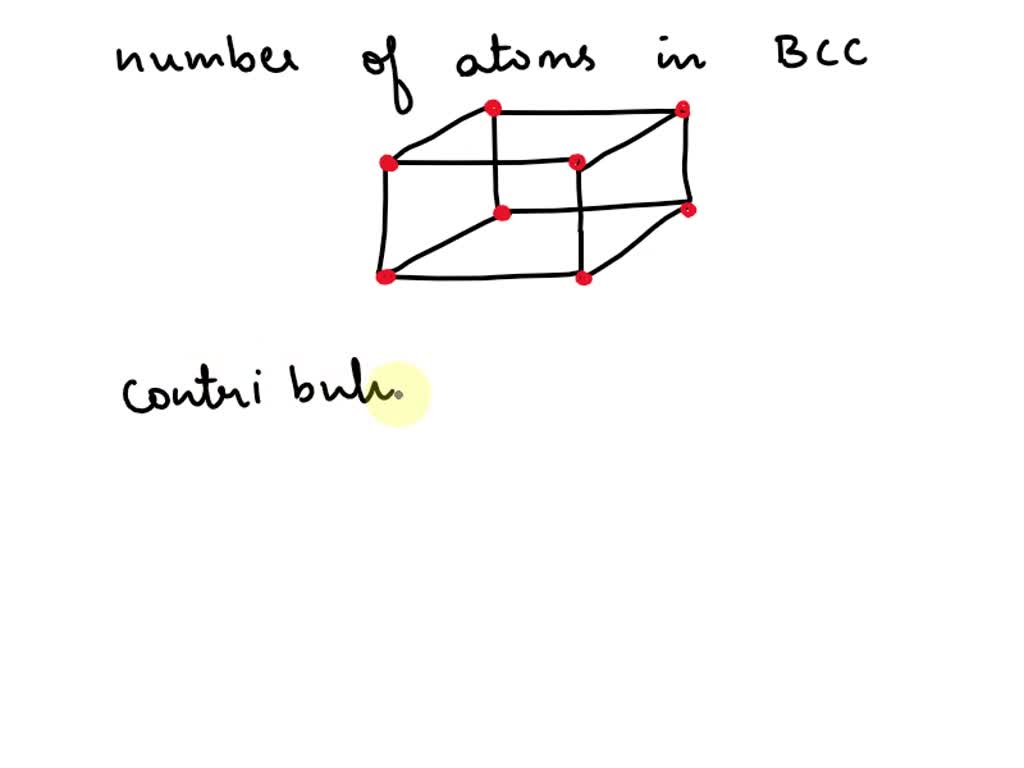 number of atoms in BCC
contri bu